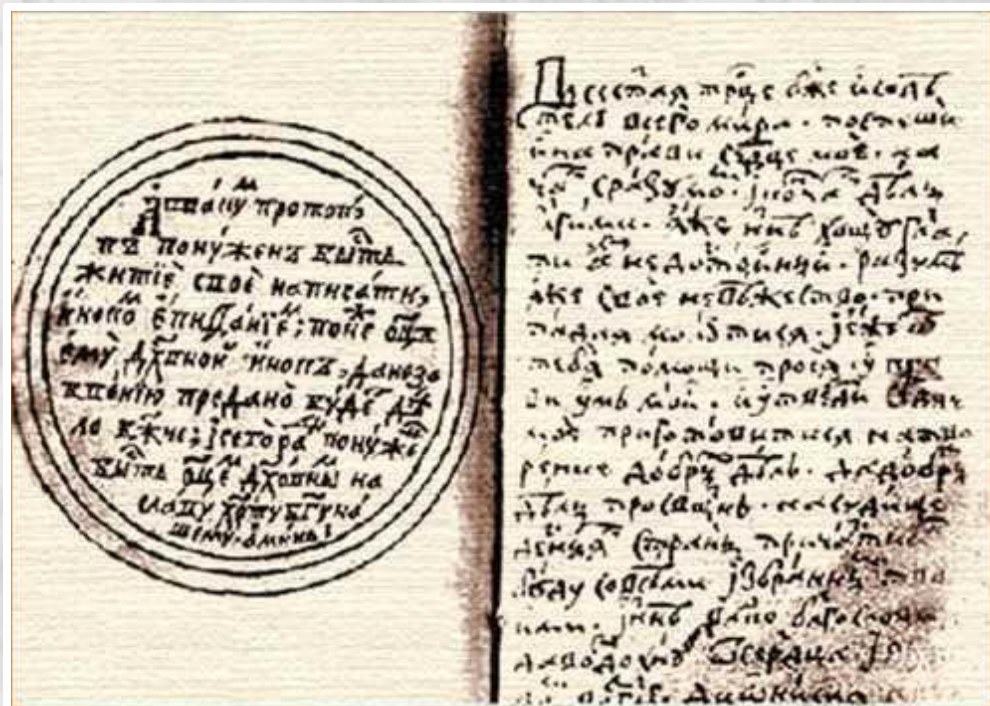 Аввакꙋм протопо
пъ понꙋженъ бысть
житиѐ своѐ написати,
инокo м епиѳаниѐ; понеж оц҃ъ
емꙋ̀ дх҃овной инокъ, да не за
бвению преданò бꙋдет дѣ
ло бж҃ие; и сегò ради понꙋжен
бысть оц҃емъ дх҃овны м на
славꙋ хрⷭ҇тꙋ бг҃ꙋ на
шемꙋ. аминь.
Всест҃ая трⷪ҇це бж҃е и содѣ
телю всегò мира. поспеши
и направи срⷣце моѐ на
чати с разꙋмом и кончати дѣлы
благими. яже нн҃ѣ хощꙋ гл҃а
ти аз недостойныи. разꙋмѣ
я же своѐ невѣжество. при
падая молю ти ся. и еже от
тебя помощи прося. ꙋпра
ви ꙋмъ мой. и ꙋтверди срⷣце
моѐ приготовитися на тво
рение добрых дѣлъ. да добрыми
дѣлы просвѣщенъ. на сꙋдище
десныя страны причастник
бꙋдꙋ со всѣми избранными тво
ими. и нн҃ѣ влⷣко благослови
да воздохнꙋв от сердца